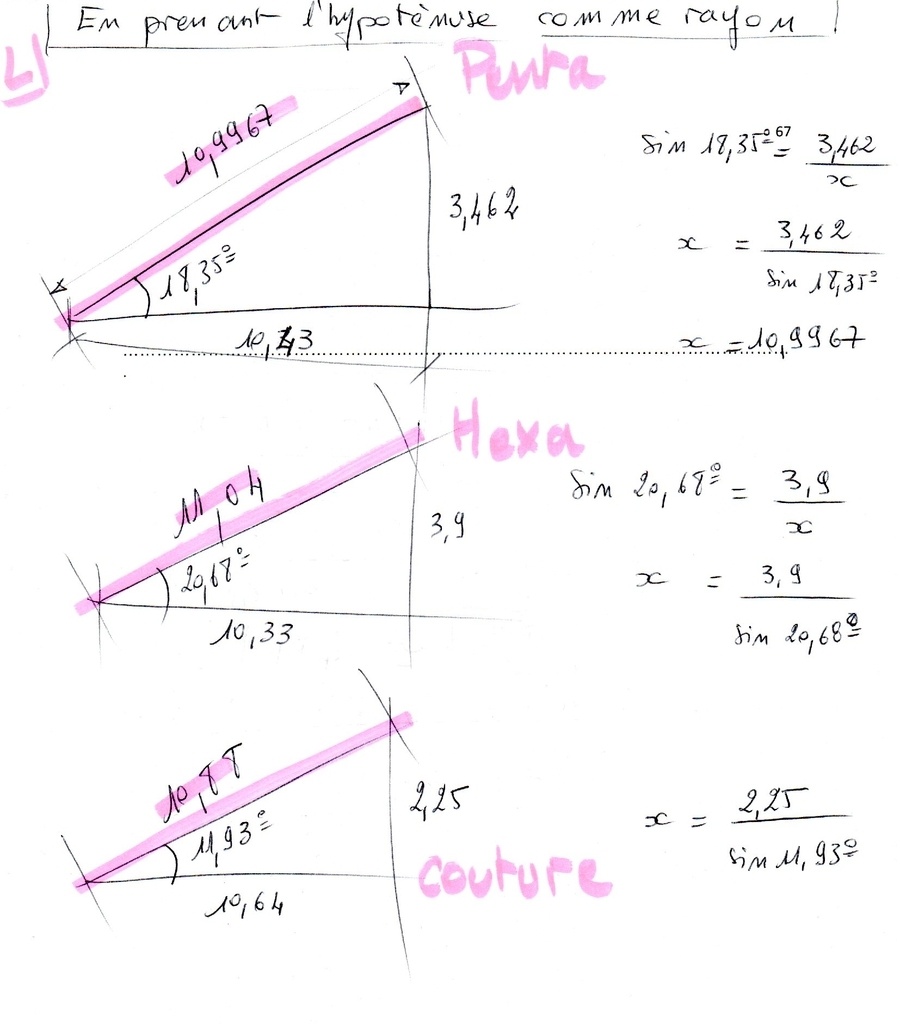 En prenant l'hypoténuse comme rayon
4)
Penta
10,9967
3,462
18,35º
sin 18,35º67 = 3,462 / x
x = 3,462 / sin 18,35º
x = 10,9967
Hexa
11,04
3,9
20,68º
10,33
sin 20,68º = 3,9 / x
x = 3,9 / sin 20,68º
10,88
2,25
11,93º
10,64
couture
x = 2,25 / sin 11,93º